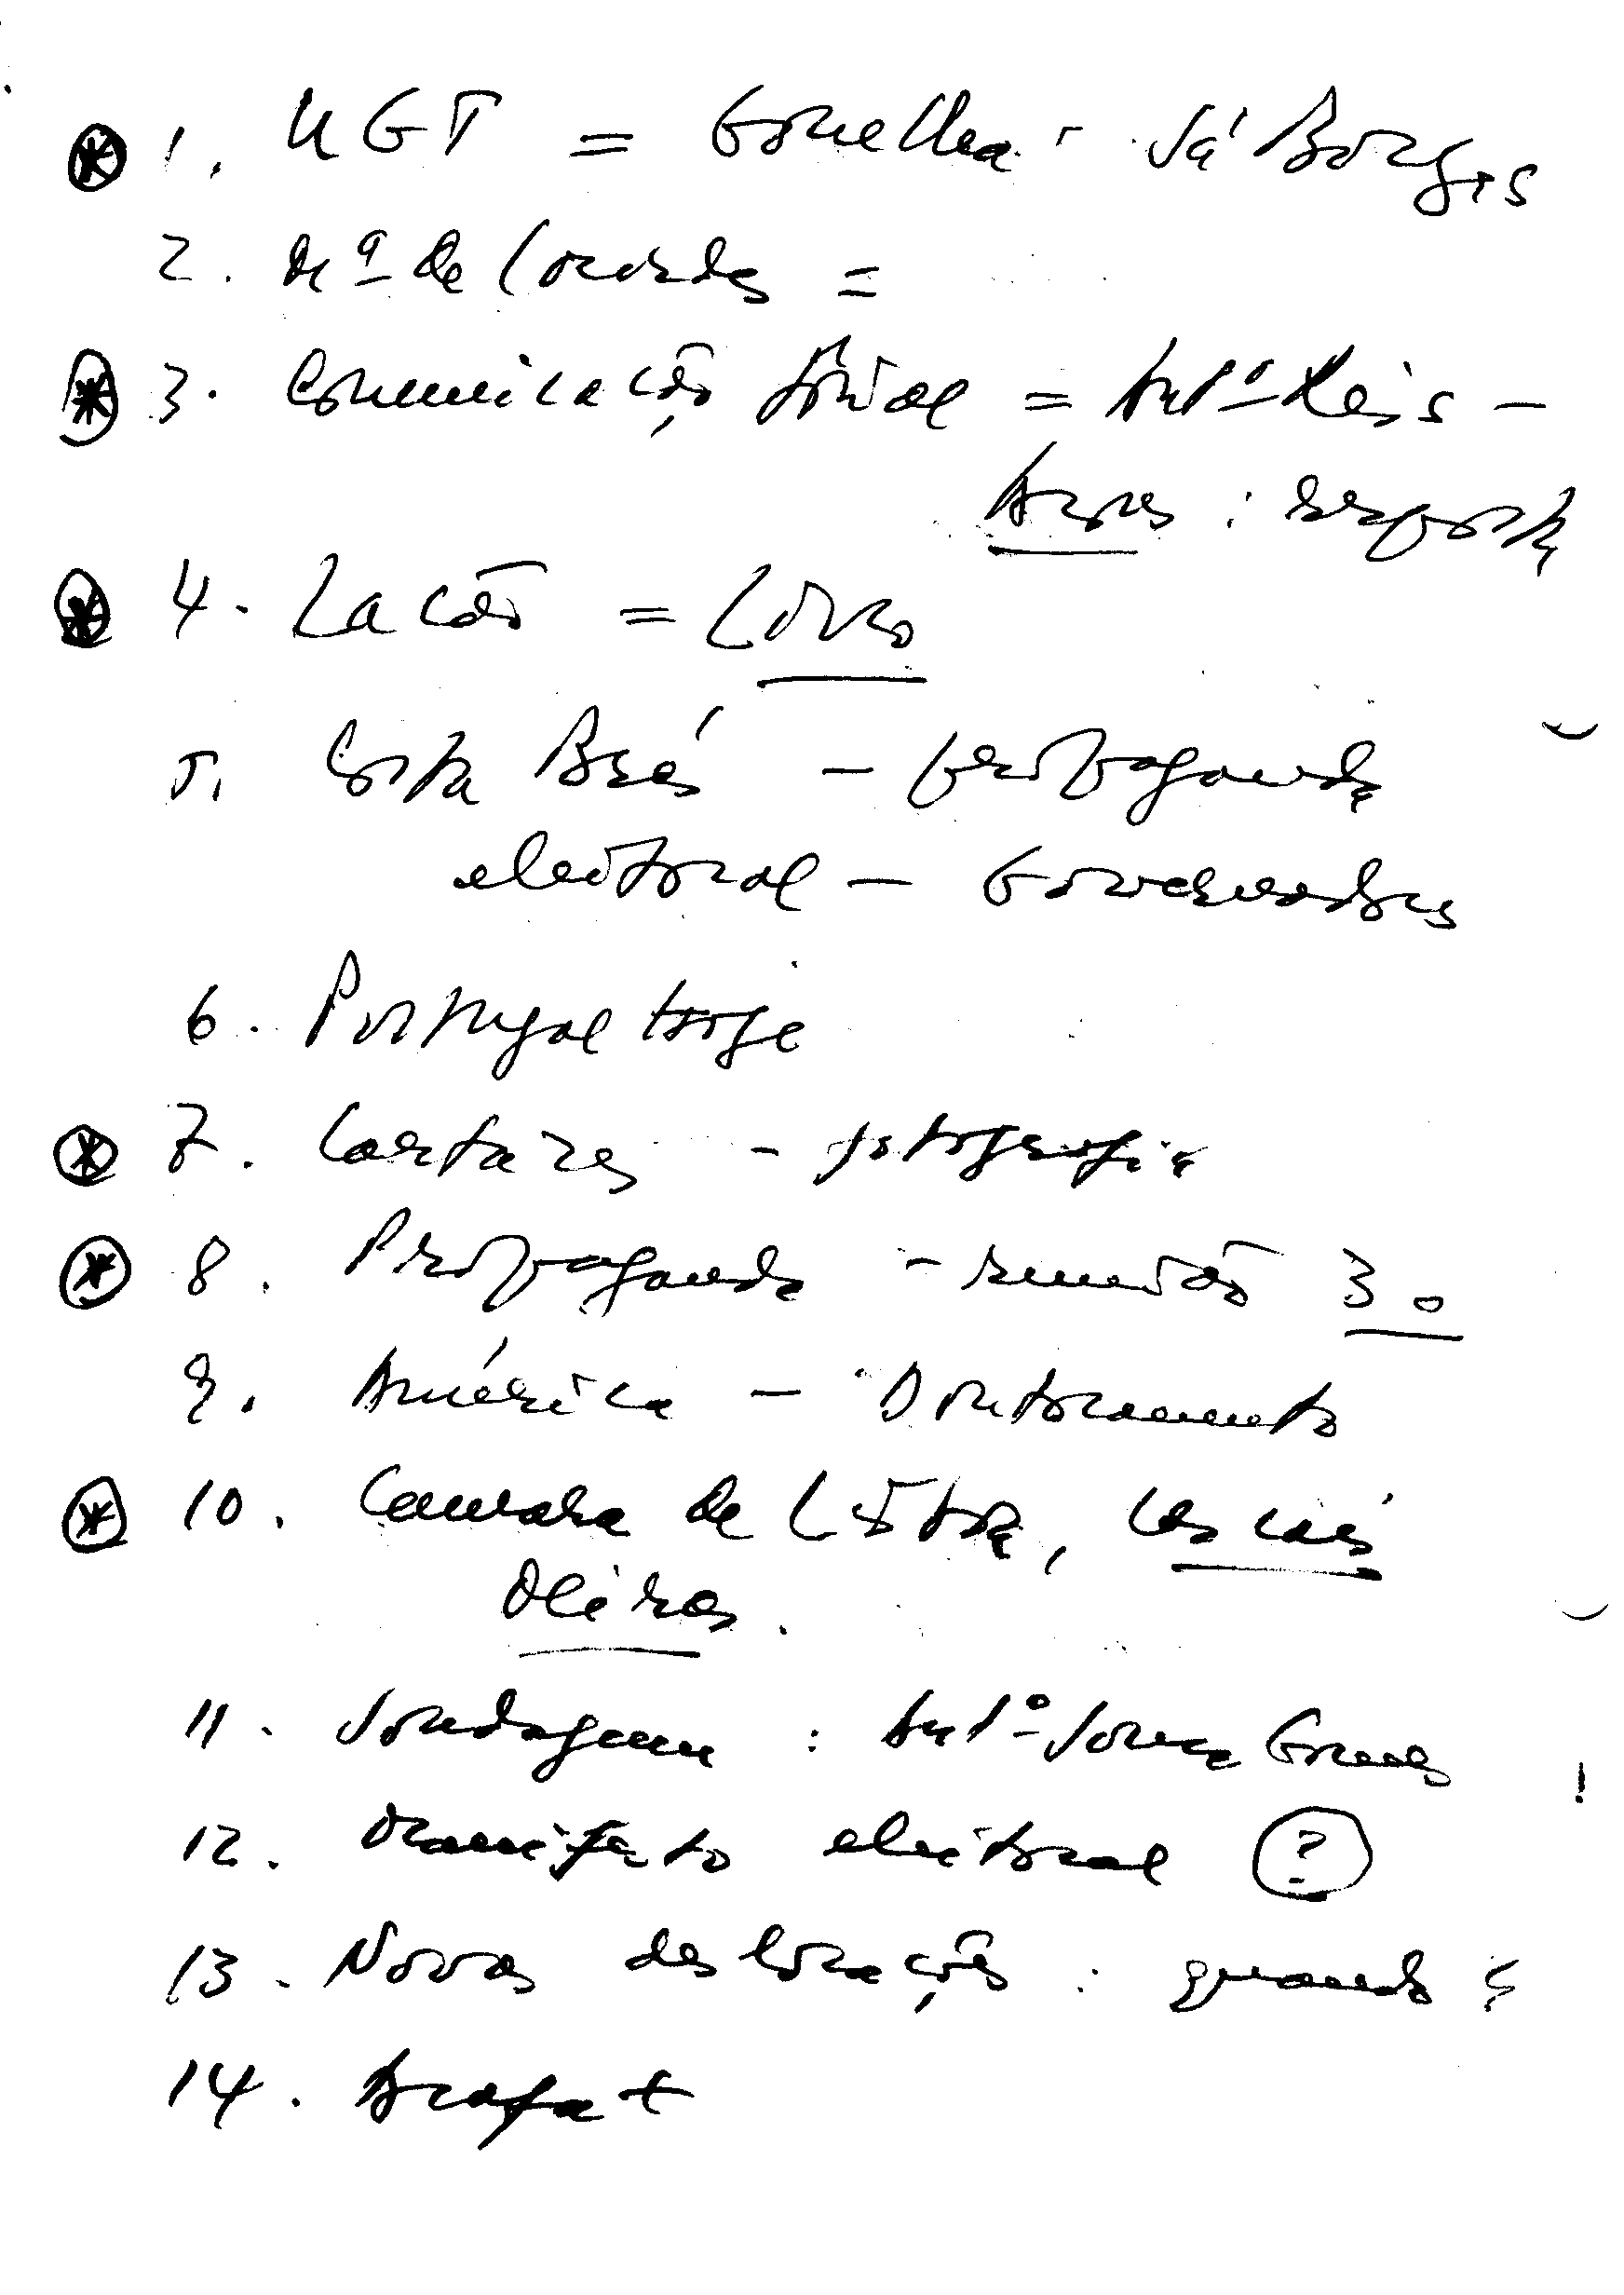 1. UGT = Gonelha - Sá Borges
2. Mª de Lourdes =
3. Comunicação Social = Antº Reis -
Açores : resposta
4. Lacão = Corvo
5. Costa Brás - propaganda
eleitoral - Governadores
6. Portugal Hoje
7. Cartazes - fotografia
8. Propaganda - reunião 30
9. América - Doutoramento
10. Camara de Lisboa, Cascais
Oeiras.
11. Sondagem : Antº Sousa Gomes
12. Manifesto eleitoral ?
13. Novas deslocações : quando ?
14. Arafat